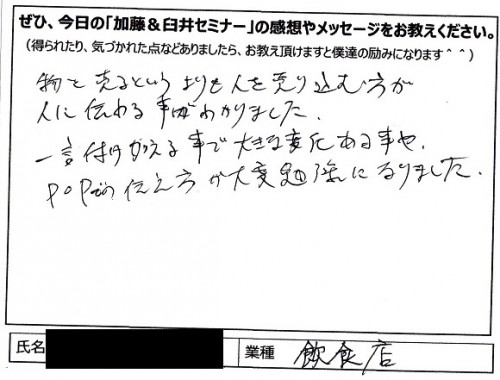 ぜひ、今日の「加藤&臼井セミナー」の感想やメッセージをお教えください。
(得られたり、気づかれた点などありましたら、お教え頂けますと僕達の励みになります＾＾)
物を売るというよりも人を売り込む方が
人に伝わる事がわかりました。
一言付けかえる事で大きな変化ある事や、
POPでの伝え方が大変勉強になりました。
氏名
業種 飲食店